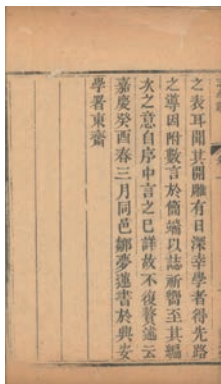 之表耳聞其開雕有日深幸學者得先路
之導因附數言於簡端以誌祈嚮至其編
次之意自序中言之已詳故不復贅述云
嘉慶癸酉春三月同邑鄒夢蓮書於興安
學署東齋